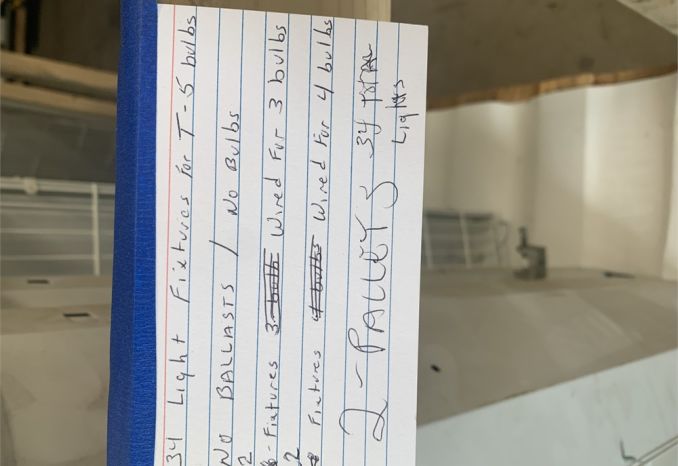 34 Light Fixtures for T-5 bulbs
NO BALLASTS / NO Bulbs
Fixtures Wired For 3 bulbs
Fixtures Wired For 4 bulbs
2 - PALLETS 34 total
Lights